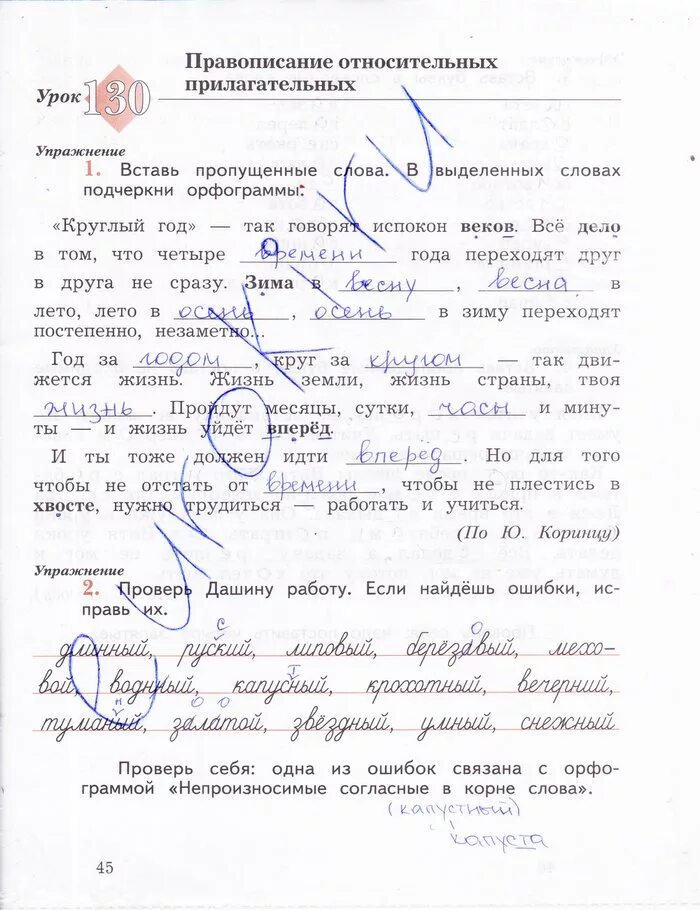 Правописание относительных
Урок 130 прилагательных
Упражнение
1. Вставь пропущенные слова. В выделенных словах
подчеркни орфограммы.
«Круглый год» — так говорят испокон веков. Всё дело
в том, что четыре времени года переходят друг
в друга не сразу. Зима в весну, весна в
лето, лето в осень, осень в зиму переходят
постепенно, незаметно...
Год за годом, круг за кругом — так дви-
жется жизнь. Жизнь земли, жизнь страны, твоя
жизнь. Пройдут месяцы, сутки, часы и мину-
ты — и жизнь уйдёт вперёд.
И ты тоже должен идти вперед. Но для того
чтобы не отстать от времени, чтобы не плестись в
хвосте, нужно трудиться — работать и учиться.
(По Ю. Коринцу)
Упражнение
2. Проверь Дашину работу. Если найдёшь ошибки, ис-
правь их.
с о
длинный, руский, липовый, берёзавый, мехо-
т
вой, воднный, капусный, крохотный, вечерний,
н о о
туманый, залатой, звёздный, умный, снежный
Проверь себя: одна из ошибок связана с орфо-
граммой «Непроизносимые согласные в корне слова».
(капустный)
капуста
45